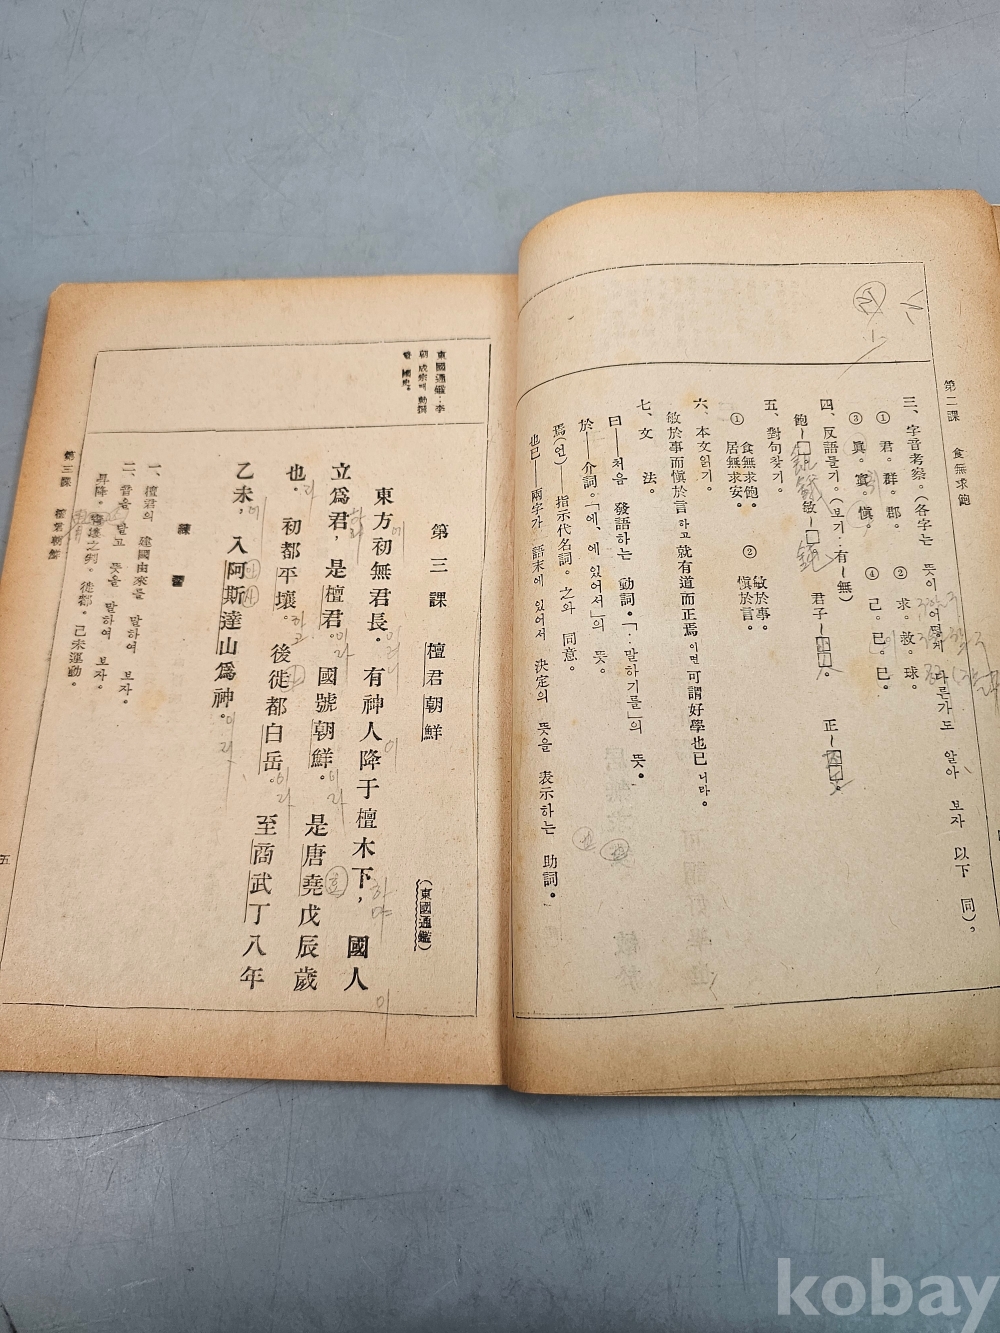 第二課 食無求飽
三、字音考察。(各字는 뜻이 어떻게 다른가도 알아 보자 以下 同)。
① 君。群。郡。 ② 求。救。球。
③ 眞。寘。愼。 ④ 己。已。巳。
四、反語들기。(보기‥有—無)
飽—□ 敏—□ 君子—□□。 正—□□。
五、對句찾기。
① 食無求飽。 居無求安。 ② 敏於事。 愼於言。
六、本文읽기。
敏於事而愼於言하고 就有道而正焉이면 可謂好學也已니라。
七、文 法。
曰——처음 發語하는 動詞。「‥말하기를」의 뜻。
於——介詞。「에、에 있어서」의 뜻。
焉(언)——指示代名詞。之와 同意。
也已——兩字가 語末에 있어서 決定의 뜻을 表示하는 助詞。
東國通鑑‥李
朝 成宗때 勅撰
國史。
第三課 檀君朝鮮
(東國通鑑)
東方初無君長。有神人降于檀木下，國人
立爲君，是檀君。國號朝鮮。是唐堯戊辰歲
也。初都平壤。後徙都白岳。至商武丁八年
乙未，入阿斯達山爲神。
練 習
一、檀君의 建國由來를 말하여 보자。
二、音을 달고 뜻을 말하여 보자。
昇降。霄壤之判。徙都。己未運動。
第三課 檀君朝鮮
五
kobay